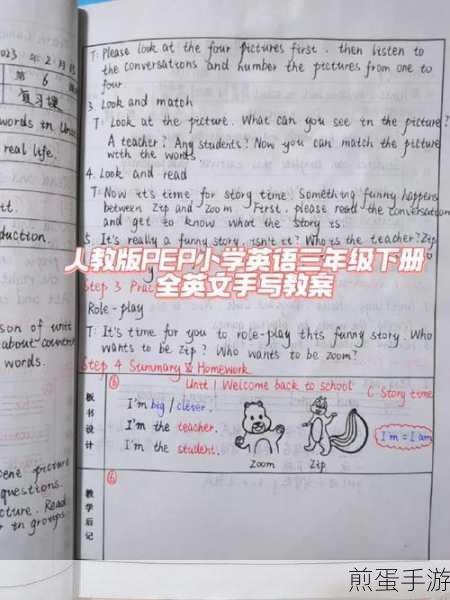 2023 年 2 月 15
第 6
复习课
words in Unit
real life.
tt.
duction.
son of unit
about countries
words.
cene picture
questions.
cture. Read
r in groups.
T: Please look at the four pictures first, then listen to
the conversations and number the pictures from one to
four.
3. Look and match
T: Look at the picture. What can you see in the picture?
A teacher? Any students? Now you can match the picture
with the words
4. Look and read
T: Now it's time for story time. Something funny happens
between Zip and Zoom. First, please read the conversation
and get to know what the story is.
5. It's really a funny story, isn't it? Who is the teacher? Zip
人教版PEP小学英语三年级下册
全英文手写教案
Step 3 Prac
Role-play
T: It's time for you to role-play this funny story. Who
wants to be Zip? Who wants to be Zoom?
Step 4 Summary & Homework
板书设计
⑥ Unit 1 Welcome back to school C Story time
I'm big / clever.
I'm the teacher.
I'm the student.
I'm = I am
Zoom Zip
教学后记
⑥
煎蛋手游